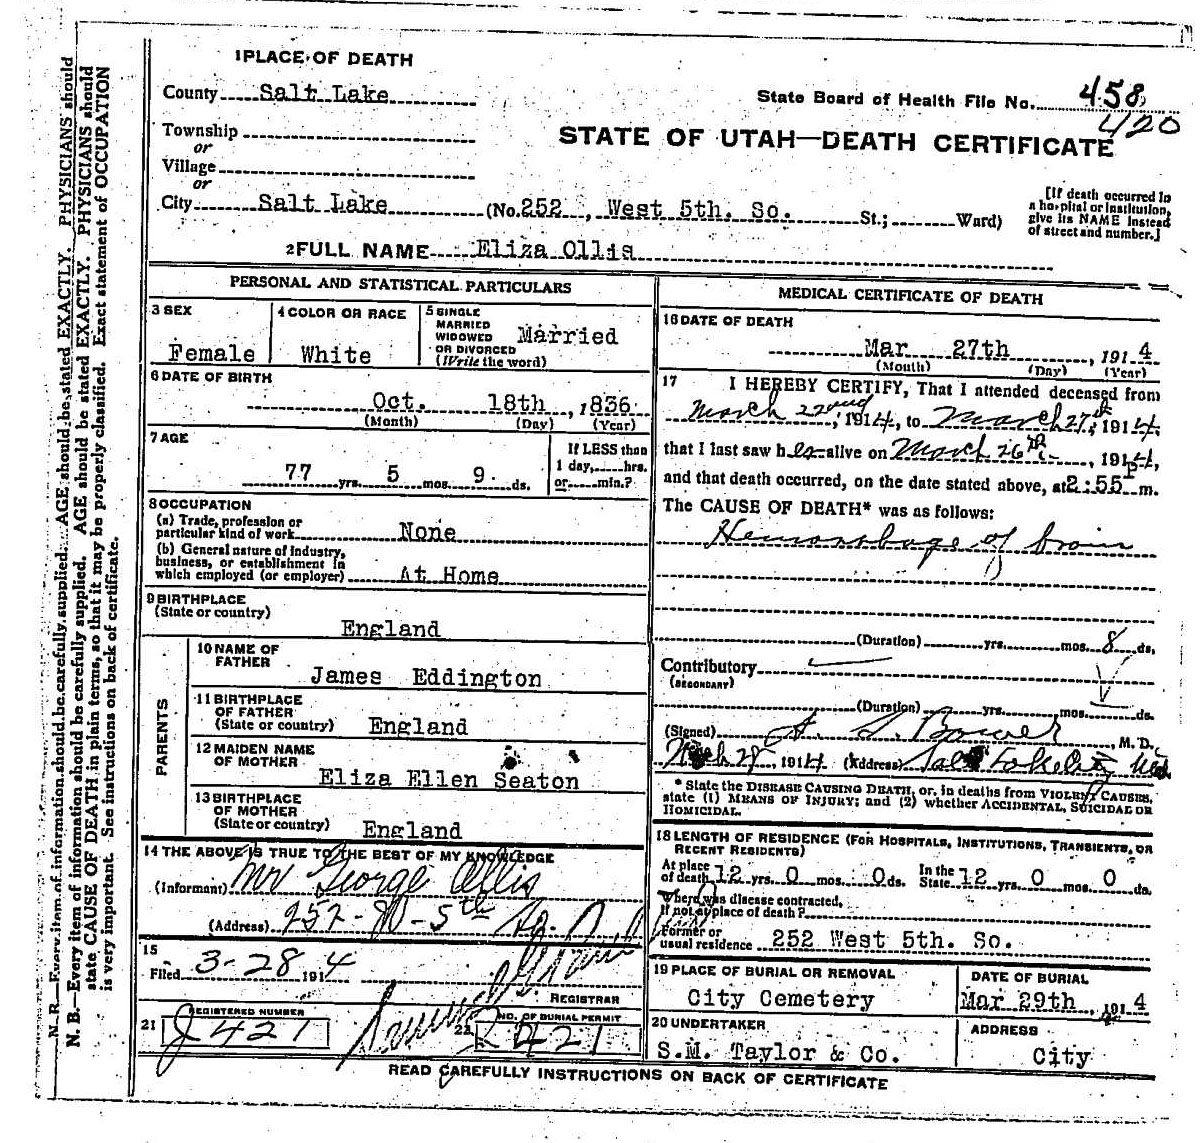 1 PLACE OF DEATH
County Salt Lake
State Board of Health File No. 458
420
Township
or
Village
or
STATE OF UTAH—DEATH CERTIFICATE
City Salt Lake (No. 252, West 5th. So. St.; Ward)
[If death occurred in a hospital or institution, give its NAME instead of street and number.]
2 FULL NAME Eliza Ollis
PERSONAL AND STATISTICAL PARTICULARS
3 SEX Female
4 COLOR OR RACE White
5 SINGLE MARRIED WIDOWED OR DIVORCED (Write the word) Married
6 DATE OF BIRTH
Oct. 18th, 1836
(Month) (Day) (Year)
7 AGE
77 yrs. 5 mos. 9 ds.
If LESS than 1 day, hrs. or min.?
8 OCCUPATION
(a) Trade, profession or particular kind of work None
(b) General nature of industry, business, or establishment in which employed (or employer) At Home
9 BIRTHPLACE
(State or country) England
PARENTS
10 NAME OF FATHER James Eddington
11 BIRTHPLACE OF FATHER (State or country) England
12 MAIDEN NAME OF MOTHER Eliza Ellen Seaton
13 BIRTHPLACE OF MOTHER (State or country) England
14 THE ABOVE IS TRUE TO THE BEST OF MY KNOWLEDGE
(Informant) Mr George Ollis
(Address) 252-W-5th So.
15
Filed 3-28 1914
REGISTRAR
21 REGISTERED NUMBER
J 421
22 NO. OF BURIAL PERMIT
421
MEDICAL CERTIFICATE OF DEATH
16 DATE OF DEATH
Mar 27th, 1914
(Month) (Day) (Year)
17 I HEREBY CERTIFY, That I attended deceased from
March 22nd, 1914, to March 27th, 1914,
that I last saw her alive on March 26th, 1914,
and that death occurred, on the date stated above, at 2:55 P m.
The CAUSE OF DEATH* was as follows:
Hemorrhage of brain
(Duration) yrs. mos. 8 ds.
Contributory
(SECONDARY)
(Duration) yrs. mos. ds.
(Signed) Bower, M. D.
1914 (Address) Salt Lake City Utah
* State the DISEASE CAUSING DEATH, or, in deaths from VIOLENT CAUSES, state (1) MEANS OF INJURY; and (2) whether ACCIDENTAL, SUICIDAL OR HOMICIDAL.
18 LENGTH OF RESIDENCE (FOR HOSPITALS, INSTITUTIONS, TRANSIENTS, OR RECENT RESIDENTS)
At place of death 12 yrs. 0 mos. 0 ds. In the State 12 yrs. 0 mos. 0 ds.
Where was disease contracted,
If not at place of death?
Former or usual residence 252 West 5th. So.
19 PLACE OF BURIAL OR REMOVAL
City Cemetery
DATE OF BURIAL
Mar 29th, 1914
20 UNDERTAKER
S.M. Taylor & Co.
ADDRESS
City
READ CAREFULLY INSTRUCTIONS ON BACK OF CERTIFICATE
N. B.—Every item of information should be carefully supplied. AGE should be stated EXACTLY. PHYSICIANS should
N. B.—Every item of information should be carefully supplied. AGE should be stated EXACTLY. PHYSICIANS should
state CAUSE OF DEATH in plain terms, so that it may be properly classified. Exact statement of OCCUPATION
is very important. See instructions on back of certificate.